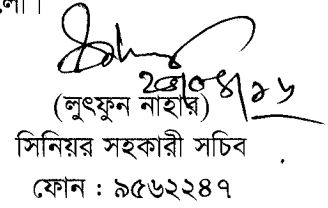 লো।
২৩/০৪/১৬
(লুৎফুন নাহার)
সিনিয়র সহকারী সচিব
ফোন : ৯৫৬২২৪৭